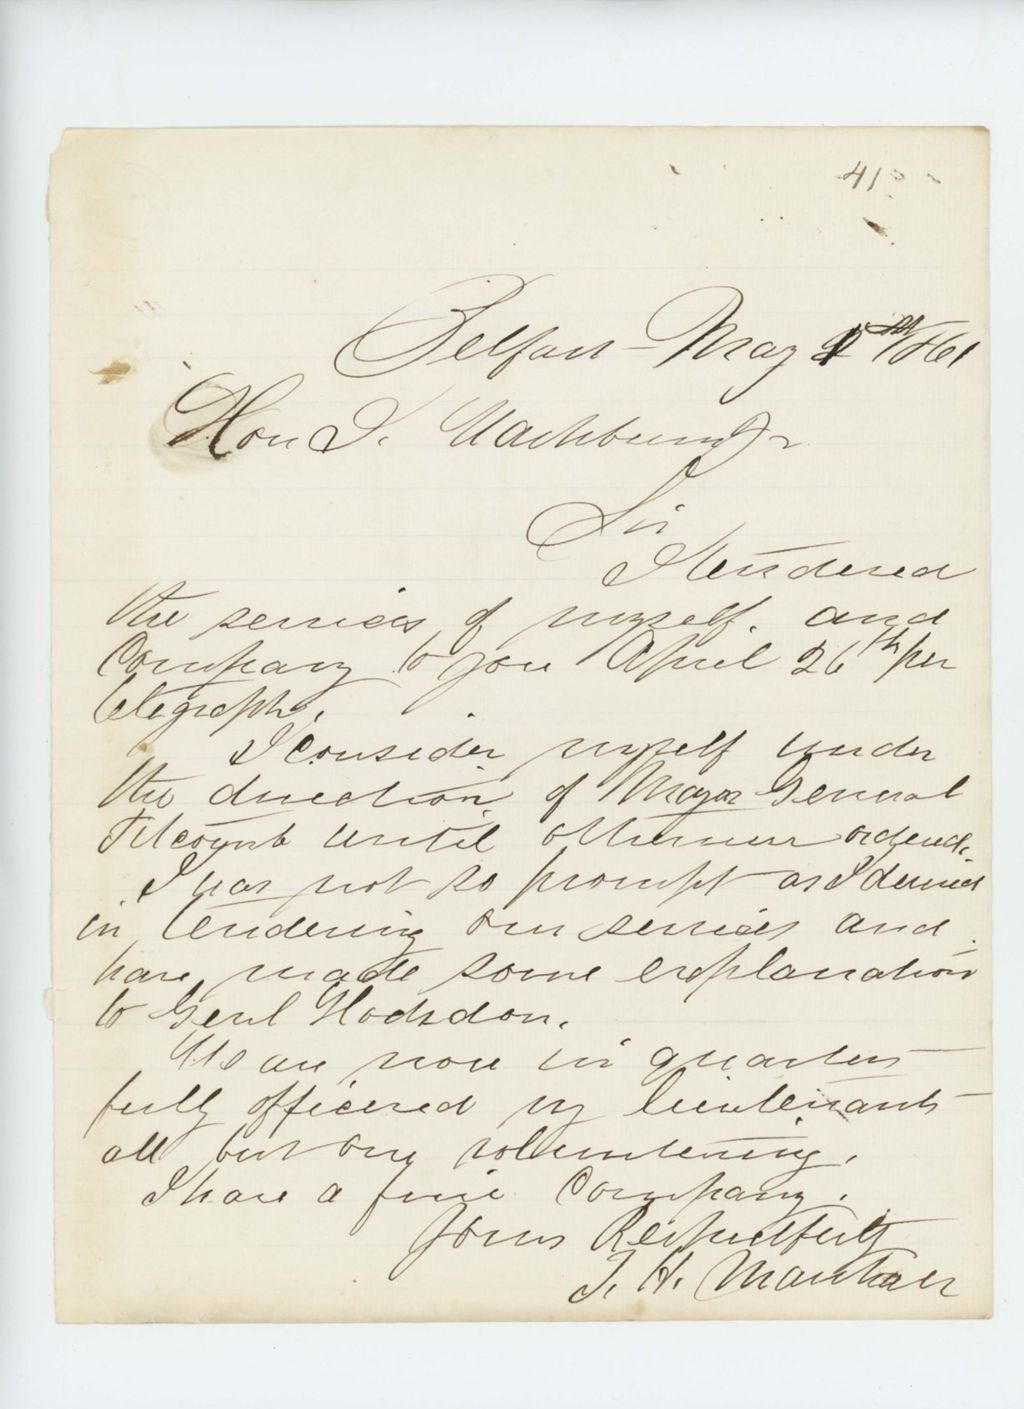 41
Belfast May 1st 1861
Hon I. Washburn Jr
Sir
I tendered
the services of myself and
Company to you April 26th per
telegraph.
I consider myself under
the direction of Major General
Titcomb until otherwise orderd.
I was not so prompt as I desired
in tendering our services and
have made some explanation
to Genl Hodsdon.
We are now in quarters
fully officered my lieutenants
all but one volunteering.
I have a fine Company.
Yours Respectfully
T. H. Marshall